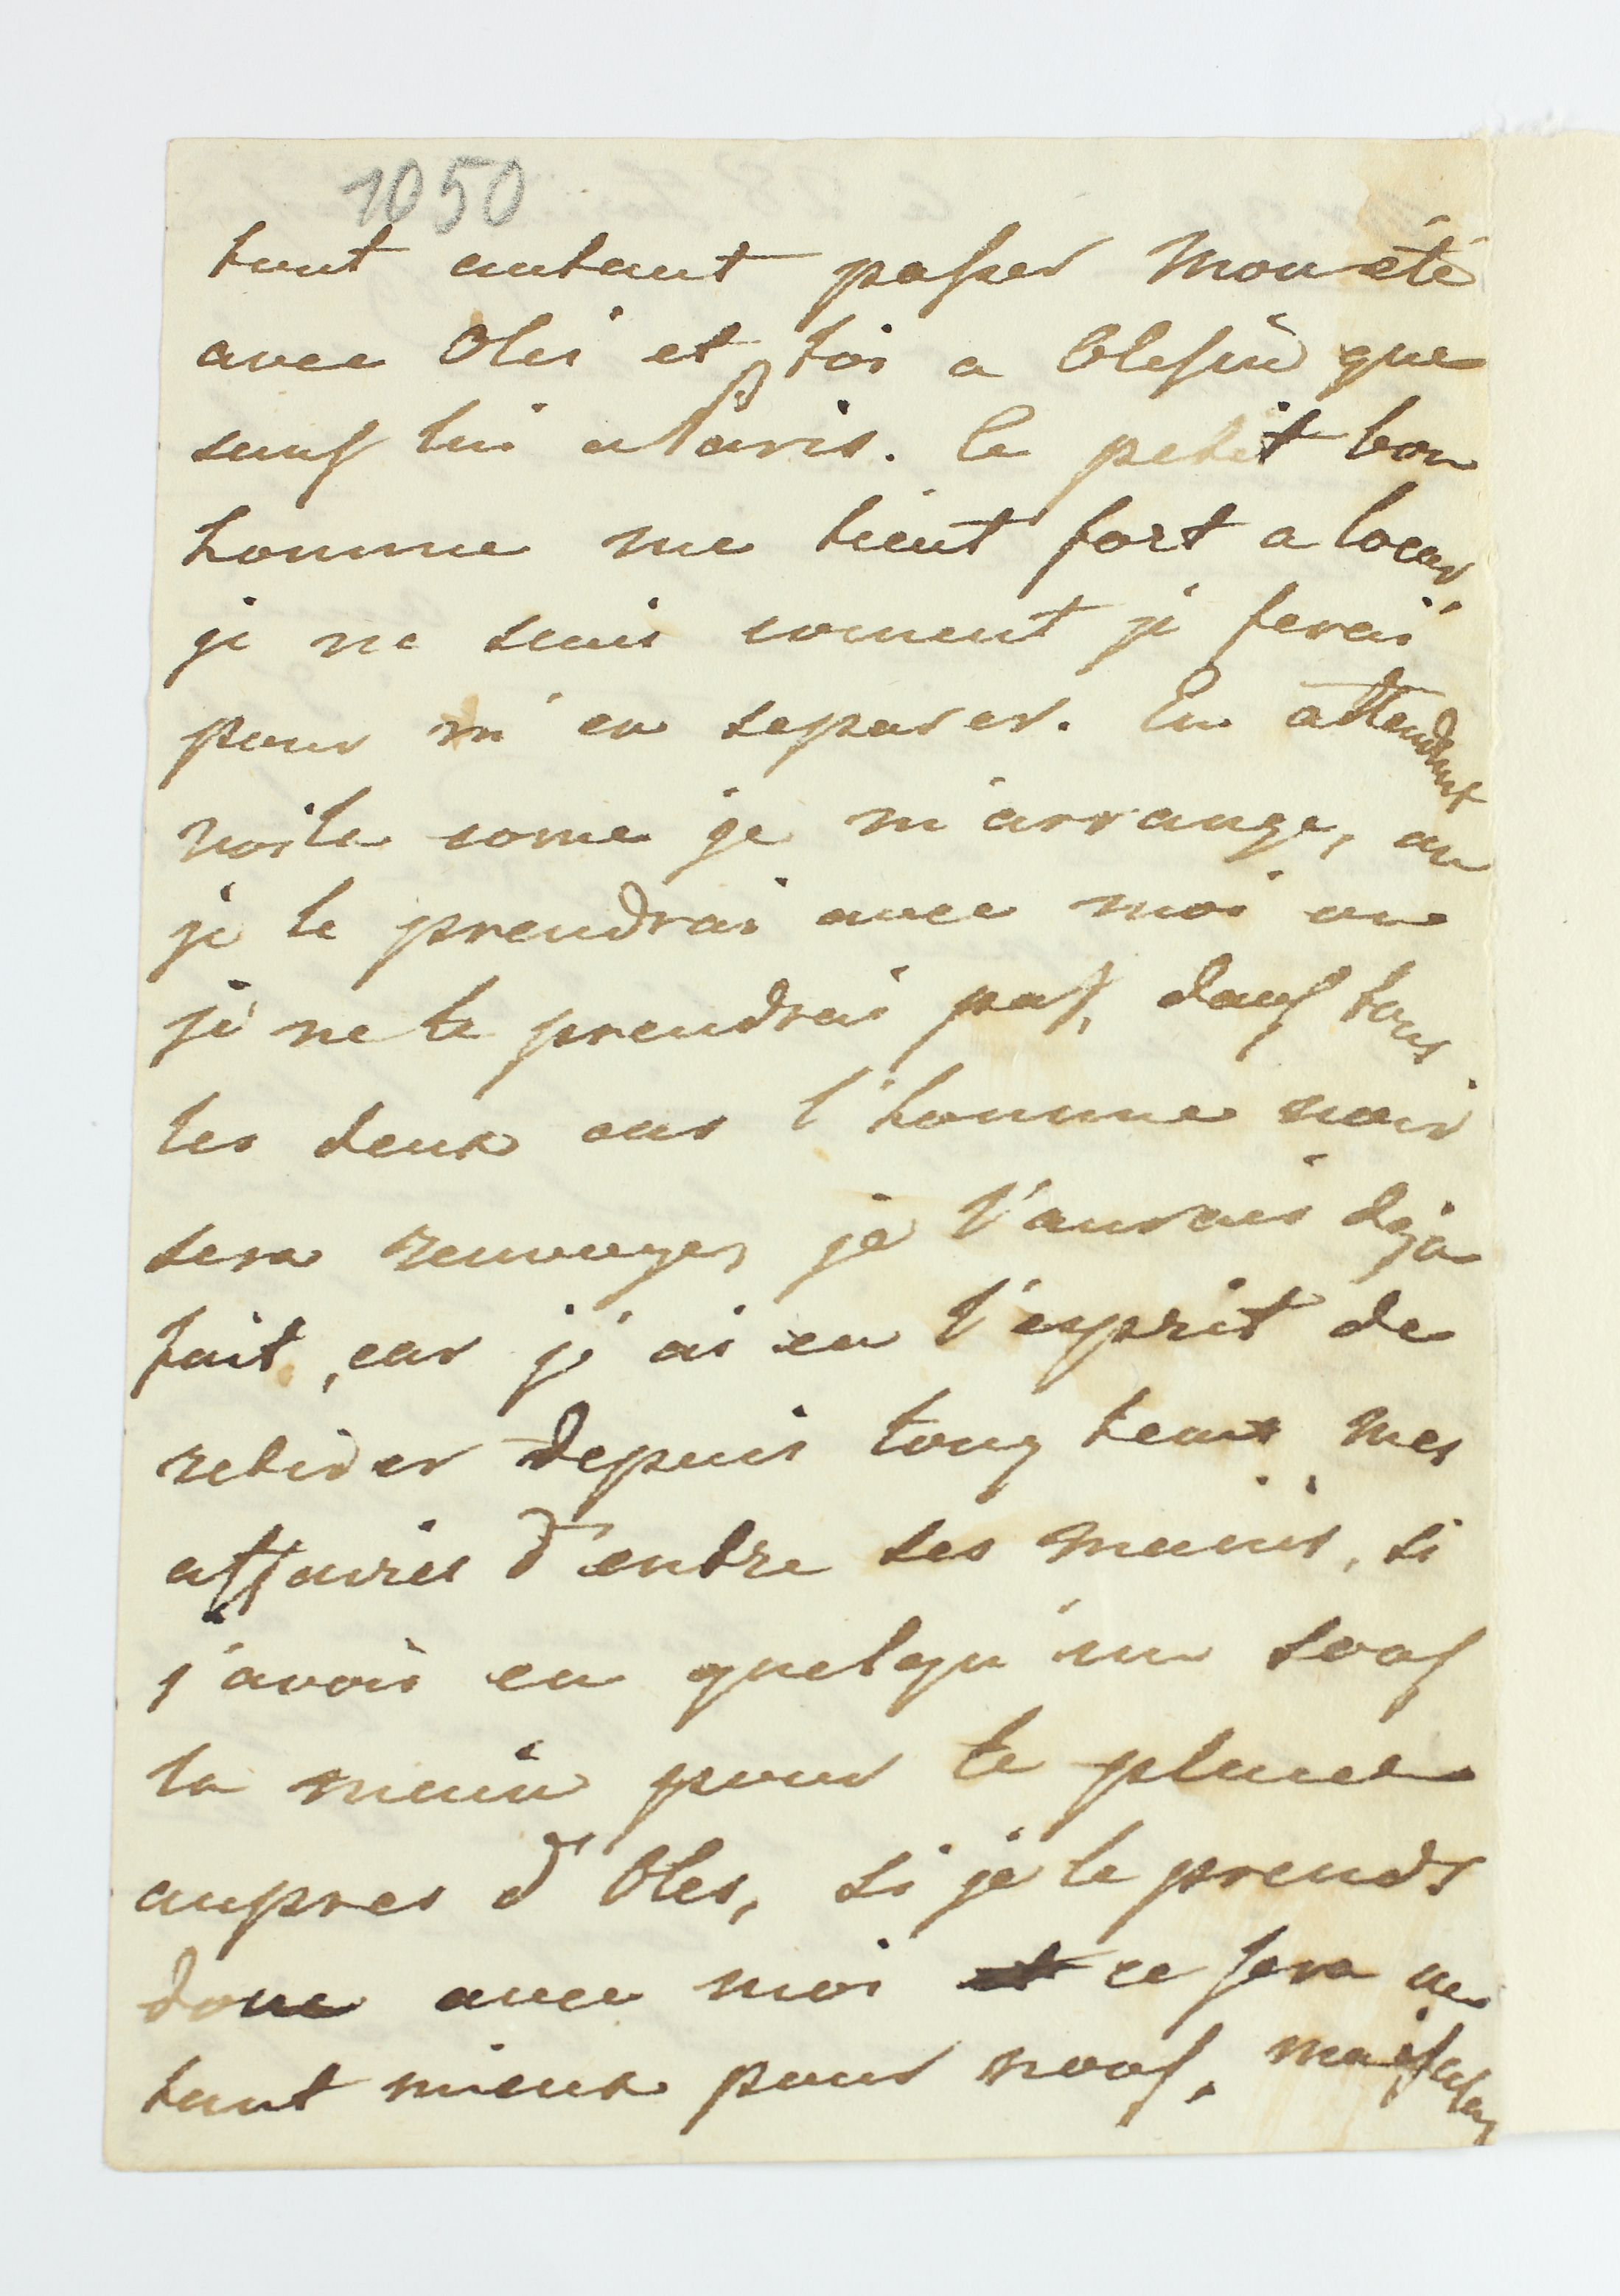 1050
tout autant passer mon été
avec Oles et toi a Olesin que
sans lui a Paris. Ce petit bon
homme me tient fort a coeur,
je ne sais coment je ferai
pour m'en separer. En attendant
voila come je m'arrange, ou
je le prendrai avec moi ou
je ne le prendrai pas, dans tous
les deux cas l'homme noir
sera renvoyer, je l'aurais deja
fait, car j'ai eu l'esprit de
retirer depuis long tems mes
affaires d'entre ses mains, si
j'avois eu quelqu'un sous
la main pour le placer
aupres d'Oles, si je le prends
donc avec moi ce sera au
tant mieux pour nous, mais